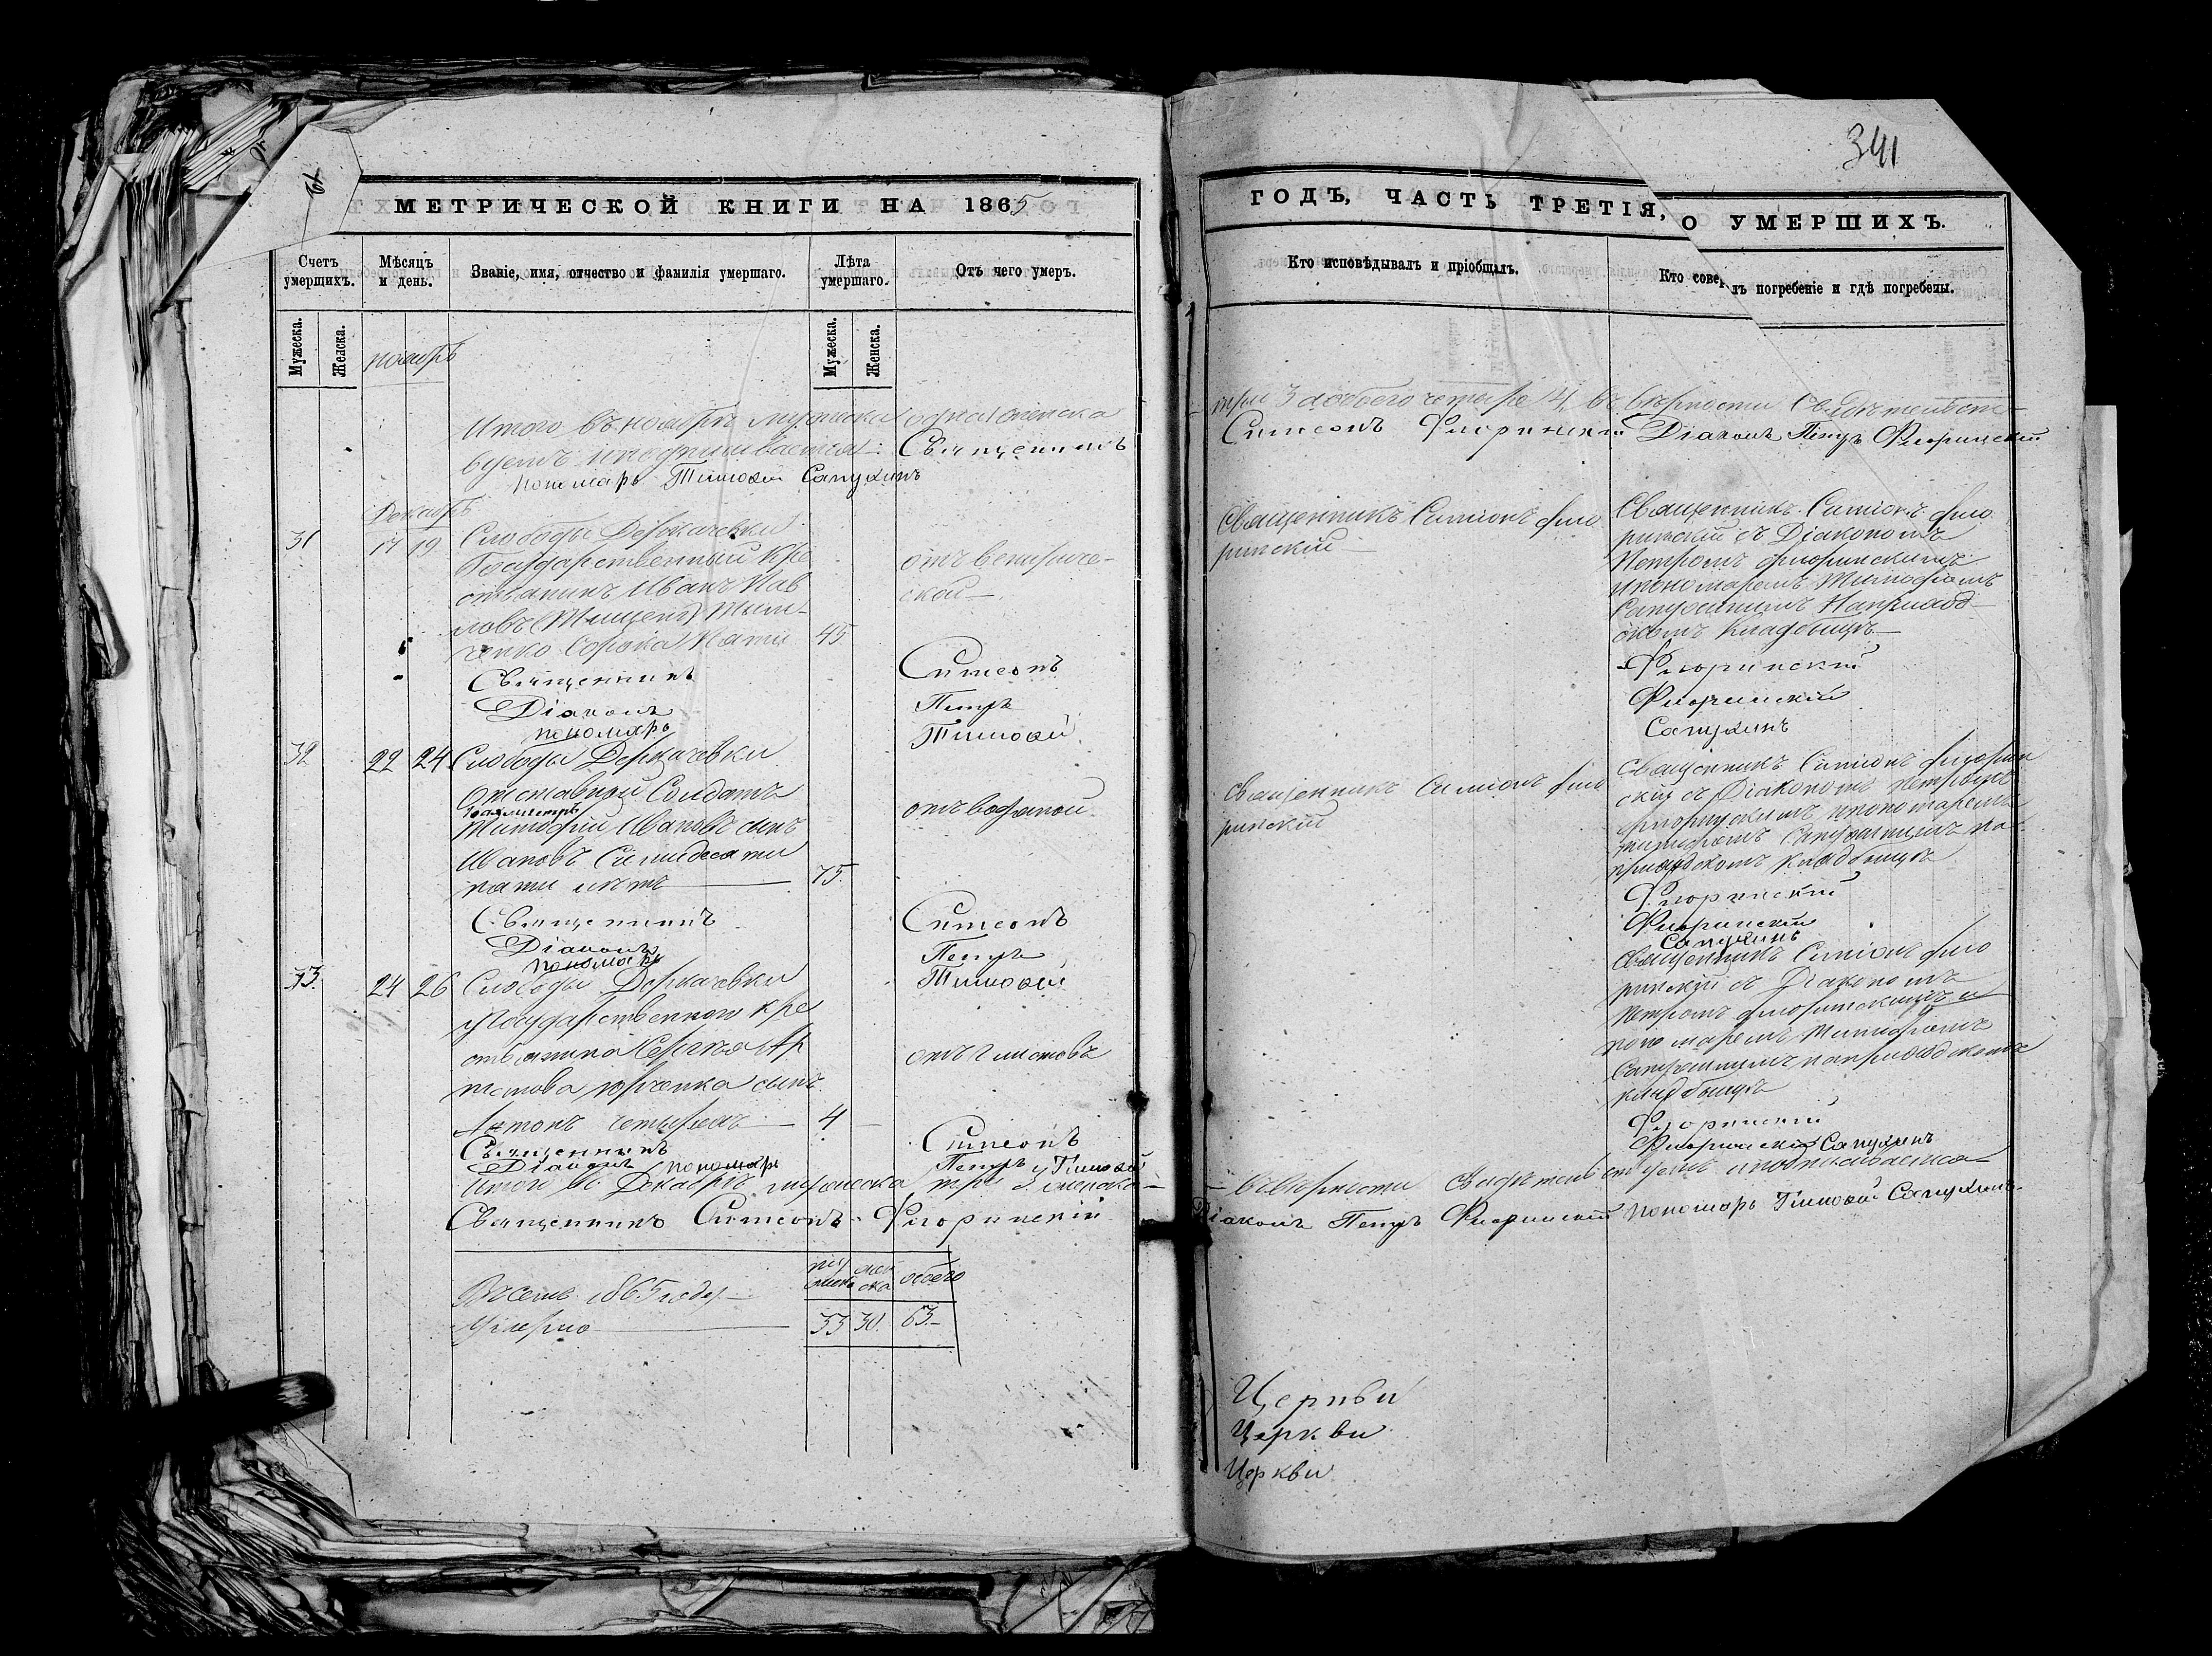 341
МЕТРИЧЕСКОЙ КНИГИ НА 1865
Счетъ умершихъ.
Мѣсяцъ и день.
Званіе, имя, отчество и фамилія умершаго.
Лѣта умершаго.
Отъ чего умеръ.
Мужеска.
Женска.
Мужеска.
Женска.
ноябрь
Итого въ ноябрѣ мужеска одна женска
вуемъ и подписываемся: Священникъ
пономарь Тимоѳй Сапухинъ
Декабрь
31 17 19 Слободы Деркачевки
Государственный кре
стьянинъ Иванъ Пав
ловъ (Тищенко)
ченко Сорока Пяти 45
отъ венериче-
ской
Священникъ Симеонъ
Діаконъ Петръ
пономарь Тимоѳй
32 22 24 Слободы Деркачевки
Отставной Солдатъ
Тимофій Ивановъ сынъ
Ивановъ Симидесяти
пяти лѣтъ 75.
отъ водяной
Священникъ Симеонъ
Діаконъ Петръ
пономарь Тимоѳй
33. 24 26 Слободы Деркачевки
у Государственнаго кре
стьянина Сергѣя Ар
тамова Юрченка сынъ
Антонъ четырехъ 4
отъ глистовъ
Священникъ Симеонъ
Діаконъ пономарь Петръ у Тимоѳй
Итого въ Декабрѣ мужеска три 3 женска
Священникъ Симеонъ Флоринскій
му жеска жен ска обоего
Въ семъ 1865 году
Умерло 33 30. 63.
ГОДЪ, ЧАСТЬ ТРЕТІЯ, О УМЕРШИХЪ.
Кто исповѣдывалъ и пріобщалъ.
Кто совер
лъ погребеніе и гдѣ погребены.
три 3 а обоего четыре 4, въ вѣрности Свидѣтельст
Симеонъ Флоринскій Діаконъ Петръ Флоринскій
Священникъ Симіонъ Фло
ринскій
Священникъ Симіонъ Фло
ринскій съ Діакономъ
Петромъ Флоринскимъ
и пономаремъ Тимофѣемъ
Сапухинымъ На приход
скомъ кладбищѣ
Флоринскій
Флоринскій
Сапухинъ
Священникъ Симіонъ Фло
ринскій
Священникъ Симіонъ Флорин
скій съ Діакономъ Петромъ
Флоринскимъ и пономаремъ
Тимофѣемъ Сапухинымъ на
приходскомъ кладбищѣ
Флоринскій
Флоринскій
Сапухинъ
Священникъ Симіонъ Фло
ринскій съ Діакономъ
Петромъ Флоринскимъ и
пономаремъ Тимофѣемъ
Сапухинымъ на приходскомъ
кладбищѣ
Флоринскій
Флоринскій Сапухинъ
въ вѣрности Свидѣтельствуемъ и подписываемся
Діаконъ Петръ Флоринскій пономарь Тимоѳй Сапухинъ
Церкви
Церкви
Церкви